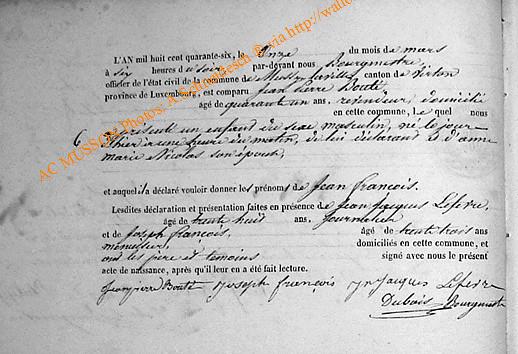 L'AN mil huit cent quarante-six, le Onze du mois de mars
à six heures du soir par-devant nous Bourgmestre
officier de l'état civil de la commune de Mussy-la-ville canton de Virton
province de Luxembourg, est comparu Jean Pierre Bouté
âgé de quarante un ans, revendeur, domicilié
en cette commune, Lequel nous
6 a présenté un enfant du sexe masculin, né le jour
d'hier à une heure du matin, de lui déclarant & d'anne
marie Nicolas son épouse,
et auquel il a déclaré vouloir donner les prénoms de Jean François.
Lesdites déclaration et présentation faites en présence de Jean Jacques Lefevre,
âgé de trente huit ans, Journalier
et de Joseph François, âgé de trente trois ans
menuisier, domiciliés en cette commune, et
ont les père et témoins signé avec nous le présent
acte de naissance, après qu'il leur en a été fait lecture.
Jeanpierre Bouté Joseph françois Jn Jacques Lefevre
Dubois Bourgmestre
AC MUSSON Photos: A. Schroedesch @ via http://wallo